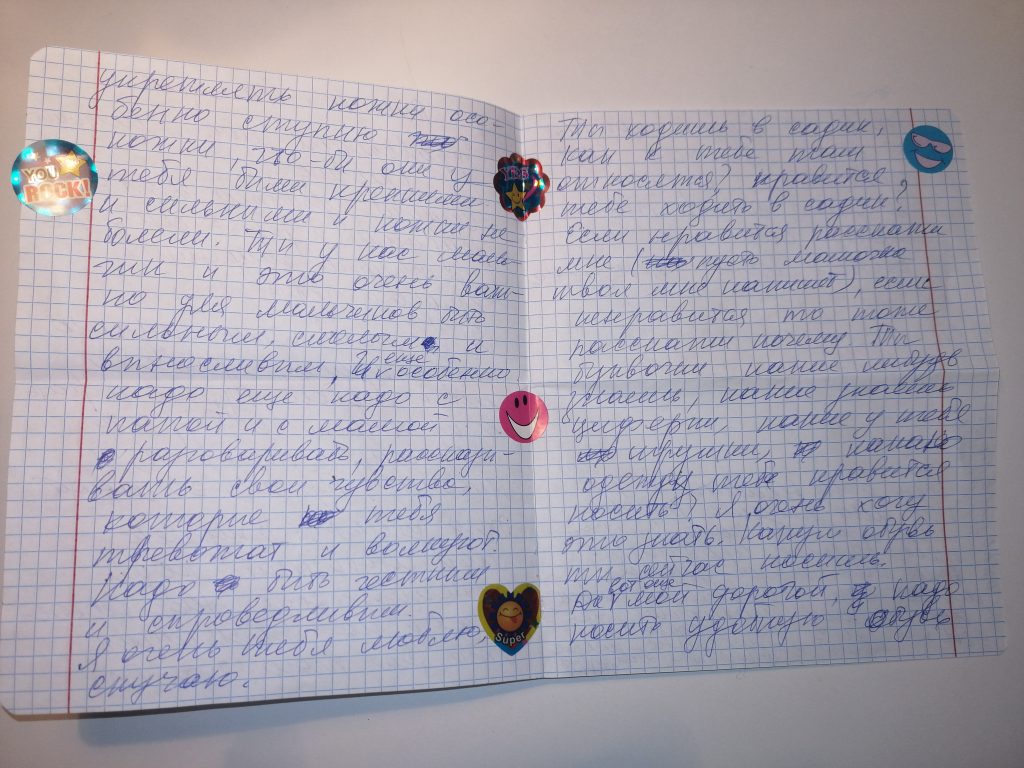 укреплять ножки осо-
бенно ступню
ножки, что-бы они у
тебя были крепкими
и сильными и ножки не
болели. Ты у нас маль-
чик и это очень важ-
но для мальчиков быть
сильным, смелым, и
выносливым, и еще особенно
надо еще надо с
папой и с мамой
разговаривать, рассказы-
вать свои чувства,
которые тебя
тревожат и волнуют.
Надо быть честным
и спроведливым.
Я очень тебя люблю
скучаю.
YOU ROCK!
YES
Super
Ты ходишь в садик,
как к тебе там
относятся? нравится
тебе ходить в садик?
Если нравится расскажи
мне (пусть мамочка
твоя мне напишет), если
ненравится то тоже
расскажи почему. Ты
буквочки какие нибудь
знаешь, какие знаешь
циферки, какие у тебя
игрушки, какую
одежду тебе нравится
носить? Я очень хочу
это знать. Какую обувь
ты сейчас носишь.
Да вот еще мой дорогой, надо
носить удобную обувь